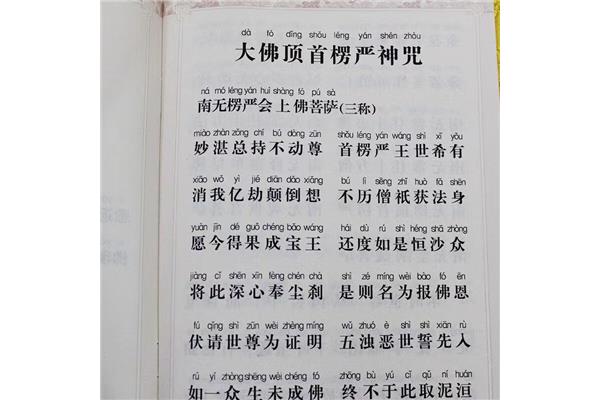 dà fó dǐng shǒu léng yán shén zhòu
大佛顶首楞严神咒
ná mó léng yán huì shàng fó pú sà
南无楞严会上佛菩萨(三称)
miào zhàn zǒng chí bú dòng zūn shǒu léng yán wáng shì xī yǒu
妙湛总持不动尊 首楞严王世希有
xiāo wǒ yì jié diān dǎo xiǎng bú lì sēng zhī huò fǎ shēn
消我亿劫颠倒想 不历僧祇获法身
yuàn jīn dé guǒ chéng bǎo wáng hái dù rú shì héng shā zhòng
愿今得果成宝王 还度如是恒沙众
jiāng cǐ shēn xīn fèng chén chà shì zé míng wèi bào fó ēn
将此深心奉尘刹 是则名为报佛恩
fú qǐng shì zūn wèi zhèng míng wǔ zhuó è shì shì xiān rù
伏请世尊为证明 五浊恶世誓先入
rú yí zhòng shēng wèi chéng fó zhōng bù yú cǐ qǔ ní huán
如一众生未成佛 终不于此取泥洹